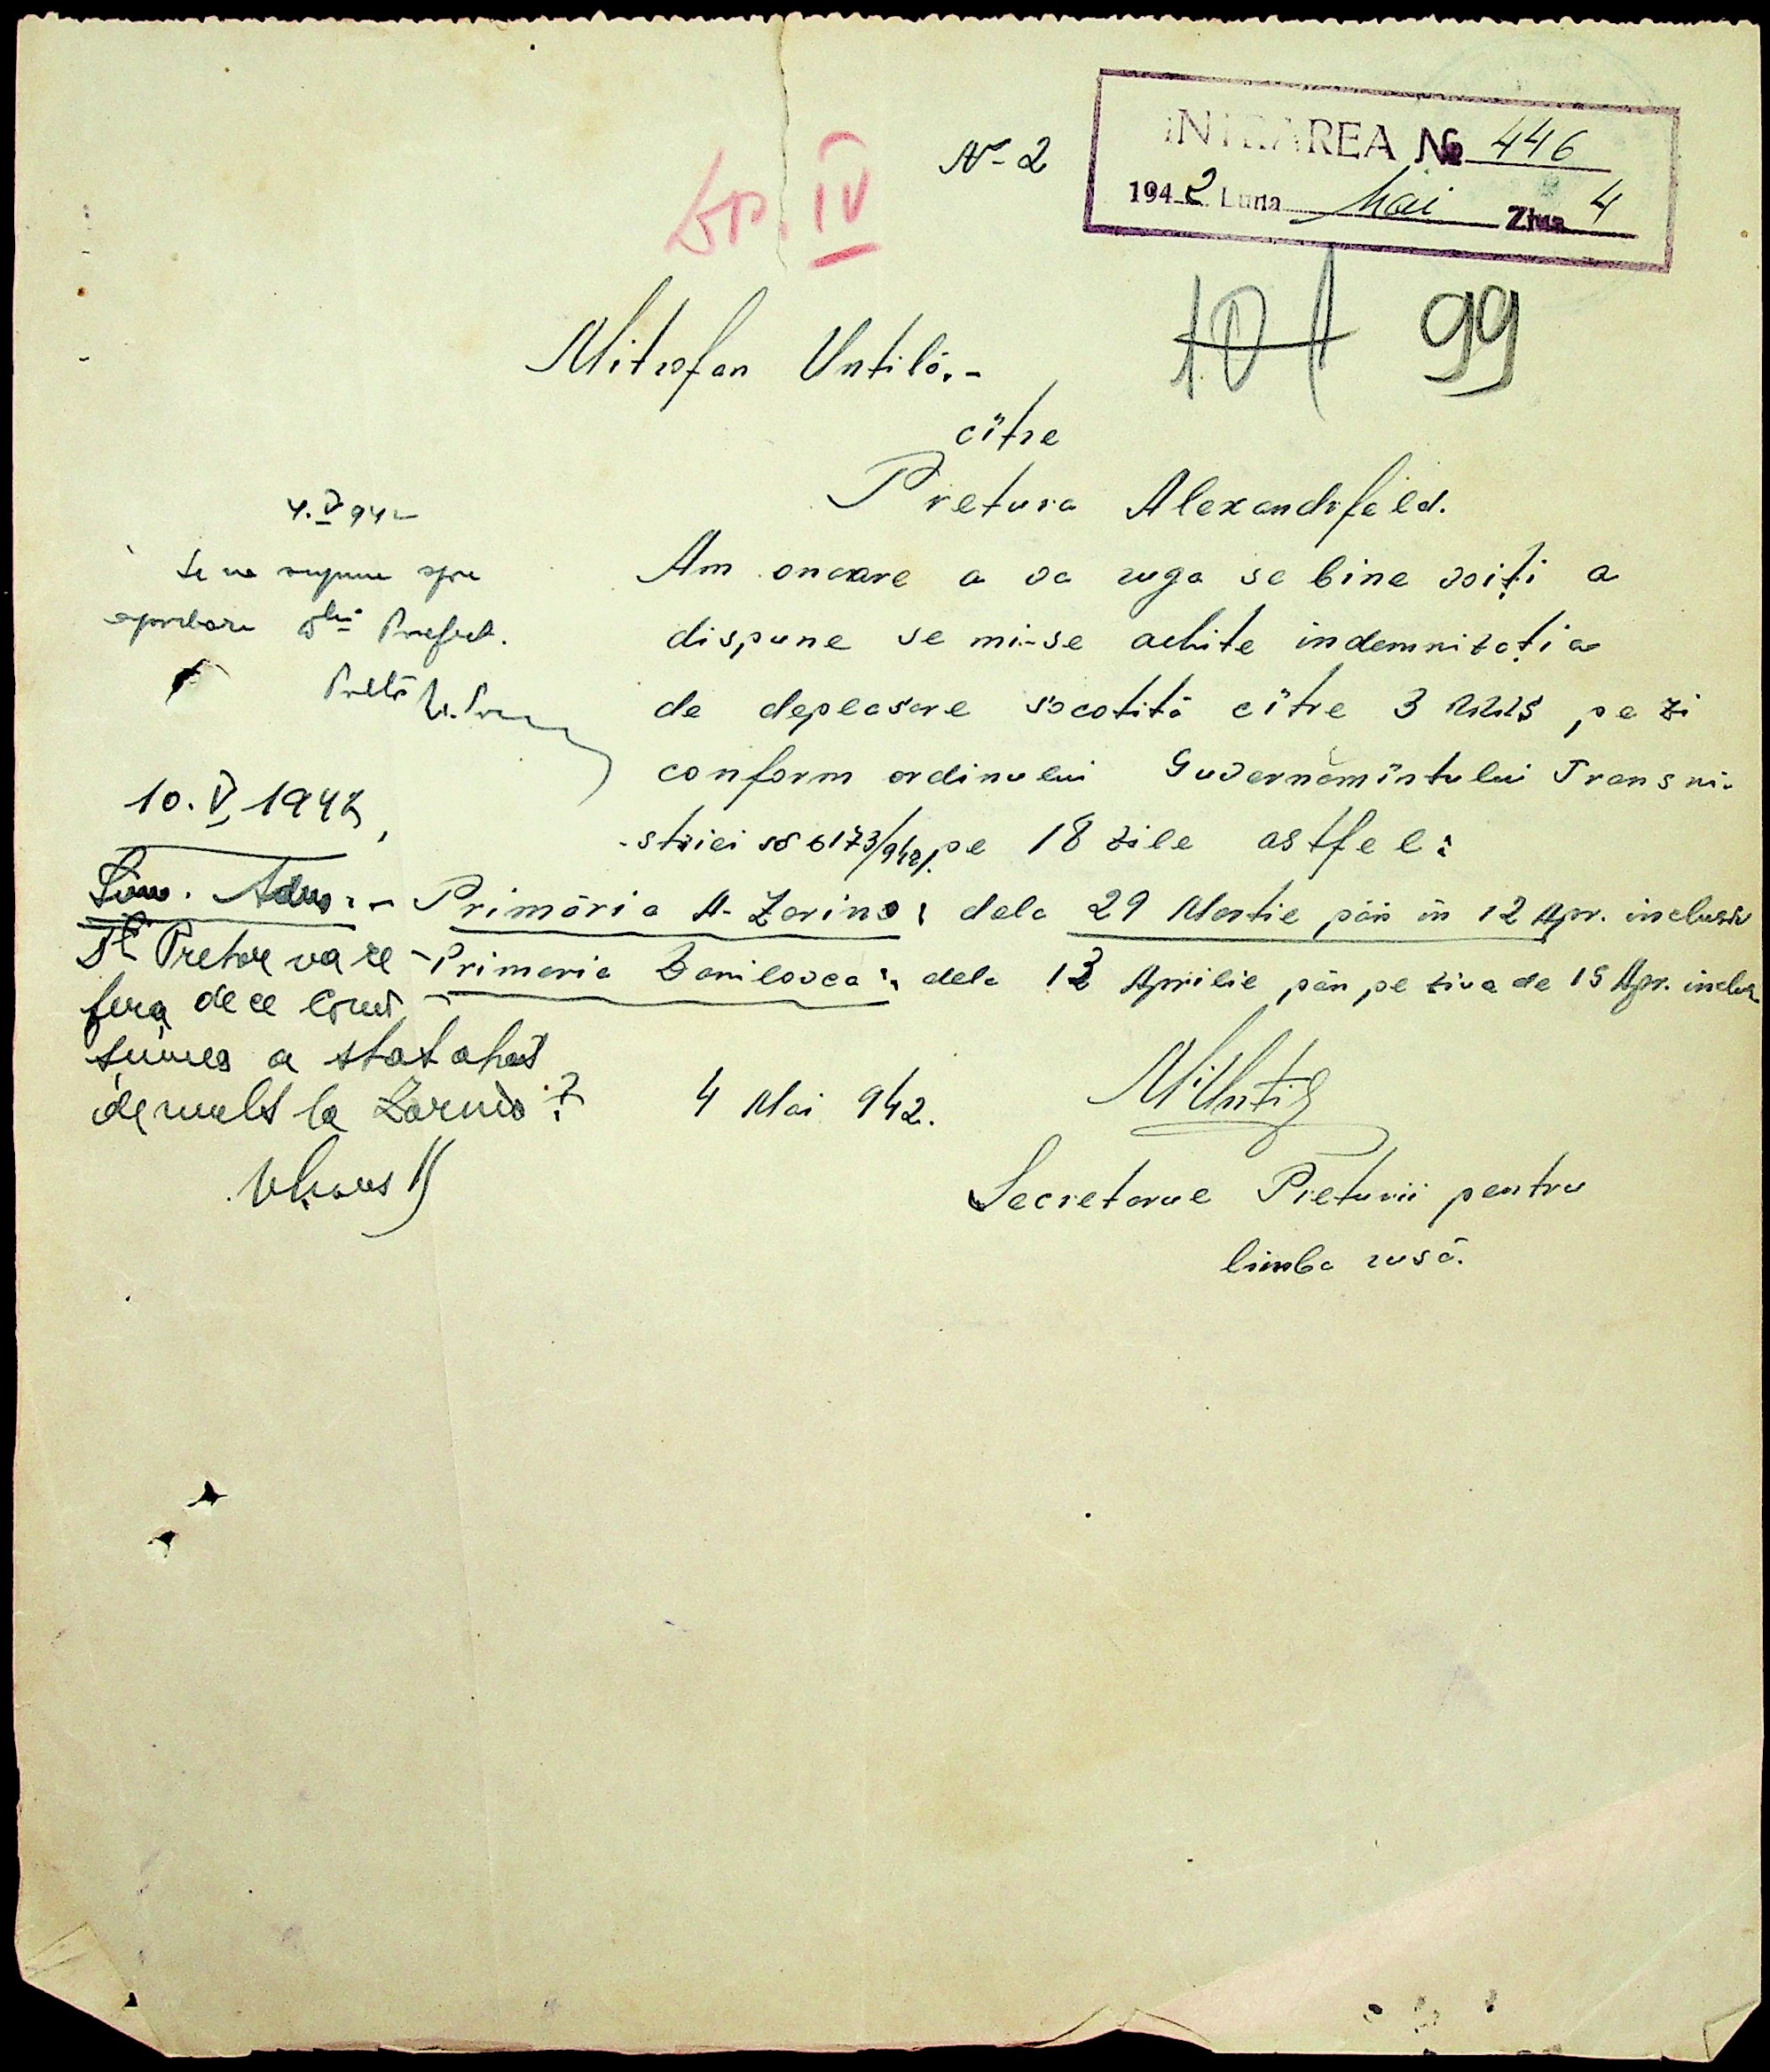 INTRAREA № 446
1942 Luna Mai Ziua 4
№ 2
IV
101 99
Mitrofan Untilă.-
cître
Pretura Alexandrfeld.
Am onoare a va ruga se bine voiți a
dispune se mi-se achite indemnizația
de depleasare socotită cître 3 RKKS pe zi
conform ordinului Guvernămîntului Transni-
-striei № 6173/942, pe 18 zile astfel:
- Primăria A- Zarino: dela 29 Martie păn în 12 Apr. inclusiv
- Primaria Danilovca: dela 13 Aprilie, păn pe ziua de 15 Apr. inclus
4 Mai 942.
Secretarue Preturii pentru
limba rusă.
4.V 942
Se va supune spre
aprobare Dlui Prefect.
Pretor
10.V.1942
Dl Pretor va re
fera de ce
a stat atât
demult la Zarino?